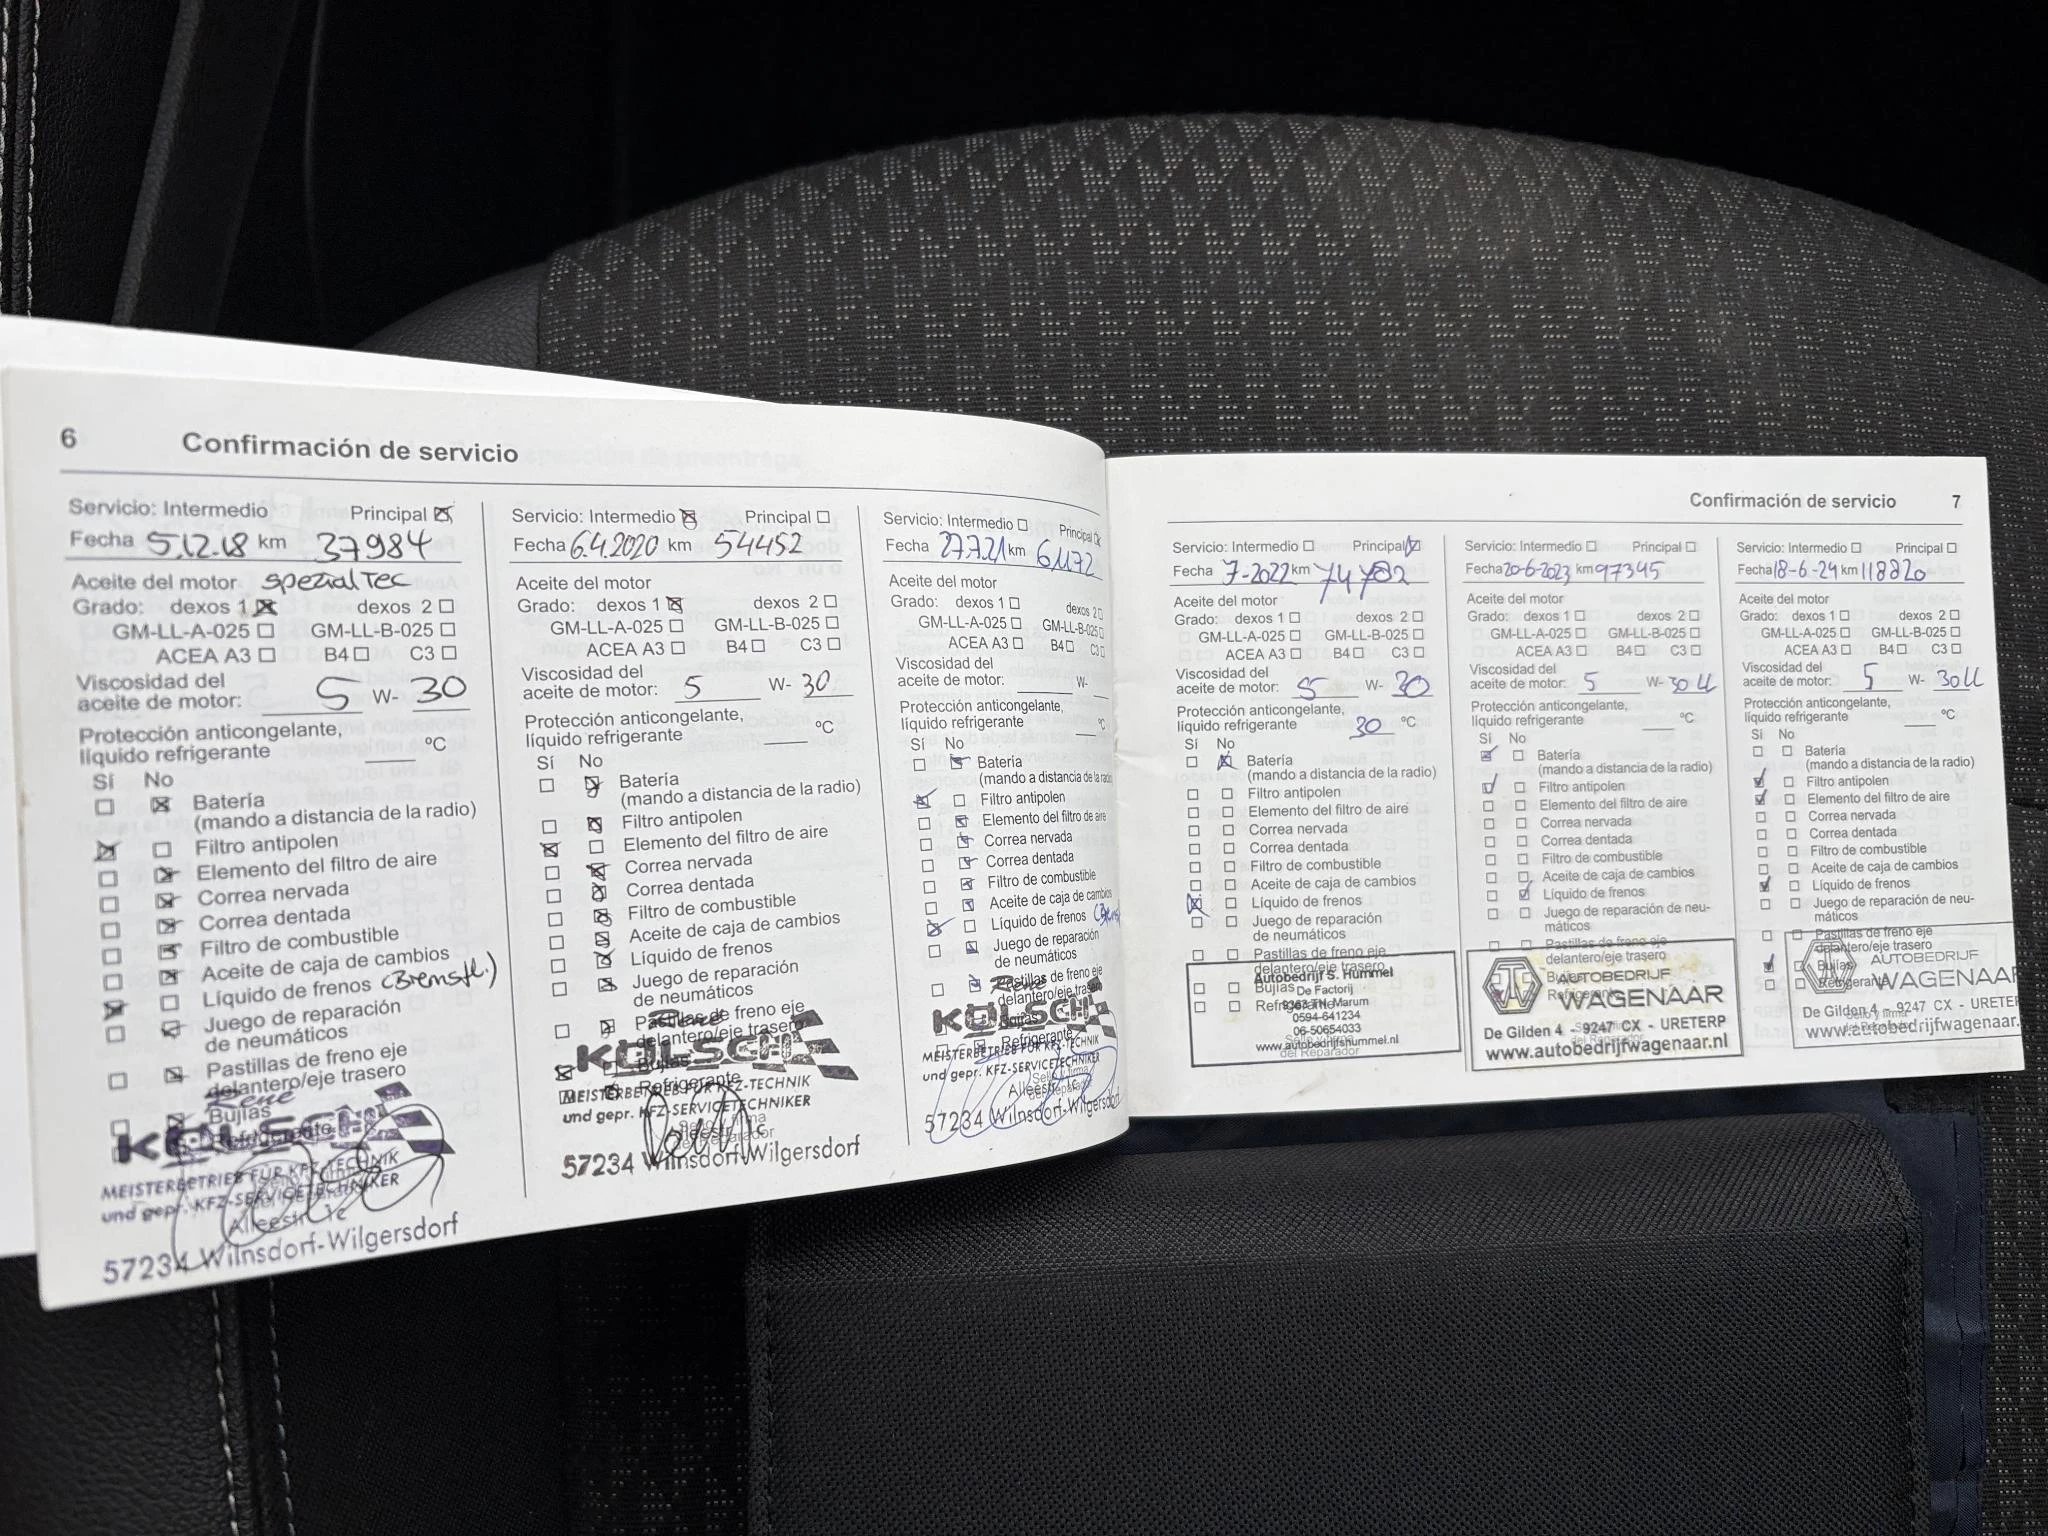 6 Confirmación de servicio
Servicio: Intermedio Principal
Fecha 5.12.18 km 37984
Aceite del motor spezialTec
Grado: dexos 1 dexos 2
GM-LL-A-025 GM-LL-B-025
ACEA A3 B4 C3
Viscosidad del
aceite de motor: 5 W- 30
Protección anticongelante,
líquido refrigerante °C
Sí No
Batería
(mando a distancia de la radio)
Filtro antipolen
Elemento del filtro de aire
Correa nervada
Correa dentada
Filtro de combustible
Aceite de caja de cambios
Líquido de frenos (Bremsfl.)
Juego de reparación
de neumáticos
Pastillas de freno eje
delantero/eje trasero
Bujías
Refrigerante
René
KÖLSCH
MEISTERBETRIEB FÜR KFZ-TECHNIK
und gepr. KFZ-SERVICETECHNIKER
Alleestr. 1c
57234 Wilnsdorf-Wilgersdorf
Servicio: Intermedio Principal
Fecha 6.4.2020 km 54452
Aceite del motor
Grado: dexos 1 dexos 2
GM-LL-A-025 GM-LL-B-025
ACEA A3 B4 C3
Viscosidad del
aceite de motor: 5 W- 30
Protección anticongelante,
líquido refrigerante °C
Sí No
Batería
(mando a distancia de la radio)
Filtro antipolen
Elemento del filtro de aire
Correa nervada
Correa dentada
Filtro de combustible
Aceite de caja de cambios
Líquido de frenos
Juego de reparación
de neumáticos
Pastillas de freno eje
delantero/eje trasero
Bujías
Refrigerante
René
KÖLSCH
MEISTERBETRIEB FÜR KFZ-TECHNIK
und gepr. KFZ-SERVICETECHNIKER
Sello y firma
del Reparador
Alleestr. 1c
57234 Wilnsdorf-Wilgersdorf
Servicio: Intermedio Principal
Fecha 27.7.21 km 61172
Aceite del motor
Grado: dexos 1 dexos 2
GM-LL-A-025 GM-LL-B-025
ACEA A3 B4 C3
Viscosidad del
aceite de motor: W-
Protección anticongelante,
líquido refrigerante °C
Sí No
Batería
(mando a distancia de la radio)
Filtro antipolen
Elemento del filtro de aire
Correa nervada
Correa dentada
Filtro de combustible
Aceite de caja de cambios
Líquido de frenos
Juego de reparación
de neumáticos
Pastillas de freno eje
delantero/eje trasero
Bujías
Refrigerante
René
KÖLSCH
MEISTERBETRIEB FÜR KFZ-TECHNIK
und gepr. KFZ-SERVICETECHNIKER
Sello y firma
del Reparador
Alleestr. 1c
57234 Wilnsdorf-Wilgersdorf
Confirmación de servicio 7
Servicio: Intermedio Principal
Fecha 7-2022 km 74782
Aceite del motor
Grado: dexos 1 dexos 2
GM-LL-A-025 GM-LL-B-025
ACEA A3 B4 C3
Viscosidad del
aceite de motor: 5 W- 30
Protección anticongelante,
líquido refrigerante 30 °C
Sí No
Batería
(mando a distancia de la radio)
Filtro antipolen
Elemento del filtro de aire
Correa nervada
Correa dentada
Filtro de combustible
Aceite de caja de cambios
Líquido de frenos
Juego de reparación
de neumáticos
Pastillas de freno eje
delantero/eje trasero
Bujías
Refrigerante
Autobedrijf S. Hummel
De Factorij
9363 TN Marum
0594-641234
06-50654033
www.autobedrijfshummel.nl
Sello y firma
del Reparador
Servicio: Intermedio Principal
Fecha 20-6-2023 km 97345
Aceite del motor
Grado: dexos 1 dexos 2
GM-LL-A-025 GM-LL-B-025
ACEA A3 B4 C3
Viscosidad del
aceite de motor: 5 W- 30 LL
Protección anticongelante,
líquido refrigerante °C
Sí No
Batería
(mando a distancia de la radio)
Filtro antipolen
Elemento del filtro de aire
Correa nervada
Correa dentada
Filtro de combustible
Aceite de caja de cambios
Líquido de frenos
Juego de reparación de neu-
máticos
Pastillas de freno eje
delantero/eje trasero
Bujías
Refrigerante
AUTOBEDRIJF
WAGENAAR
De Gilden 4 - 9247 CX - URETERP
www.autobedrijfwagenaar.nl
Sello y firma
del Reparador
Servicio: Intermedio Principal
Fecha 18-6-24 km 118820
Aceite del motor
Grado: dexos 1 dexos 2
GM-LL-A-025 GM-LL-B-025
ACEA A3 B4 C3
Viscosidad del
aceite de motor: 5 W- 30 LL
Protección anticongelante,
líquido refrigerante °C
Sí No
Batería
(mando a distancia de la radio)
Filtro antipolen
Elemento del filtro de aire
Correa nervada
Correa dentada
Filtro de combustible
Aceite de caja de cambios
Líquido de frenos
Juego de reparación de neu-
máticos
Pastillas de freno eje
delantero/eje trasero
Bujías
Refrigerante
AUTOBEDRIJF
WAGENAAR
De Gilden 4 - 9247 CX - URETER
www.autobedrijfwagenaar.
Sello y firma
del Reparador